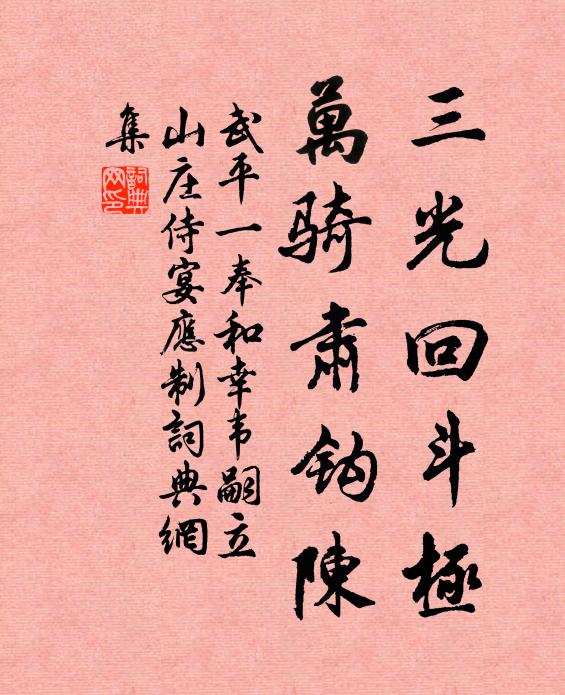 三光回斗極
萬騎肅鈎陳
武平一奉和幸韦嗣立
山庄侍宴應制詞典網
集
詞典
网印